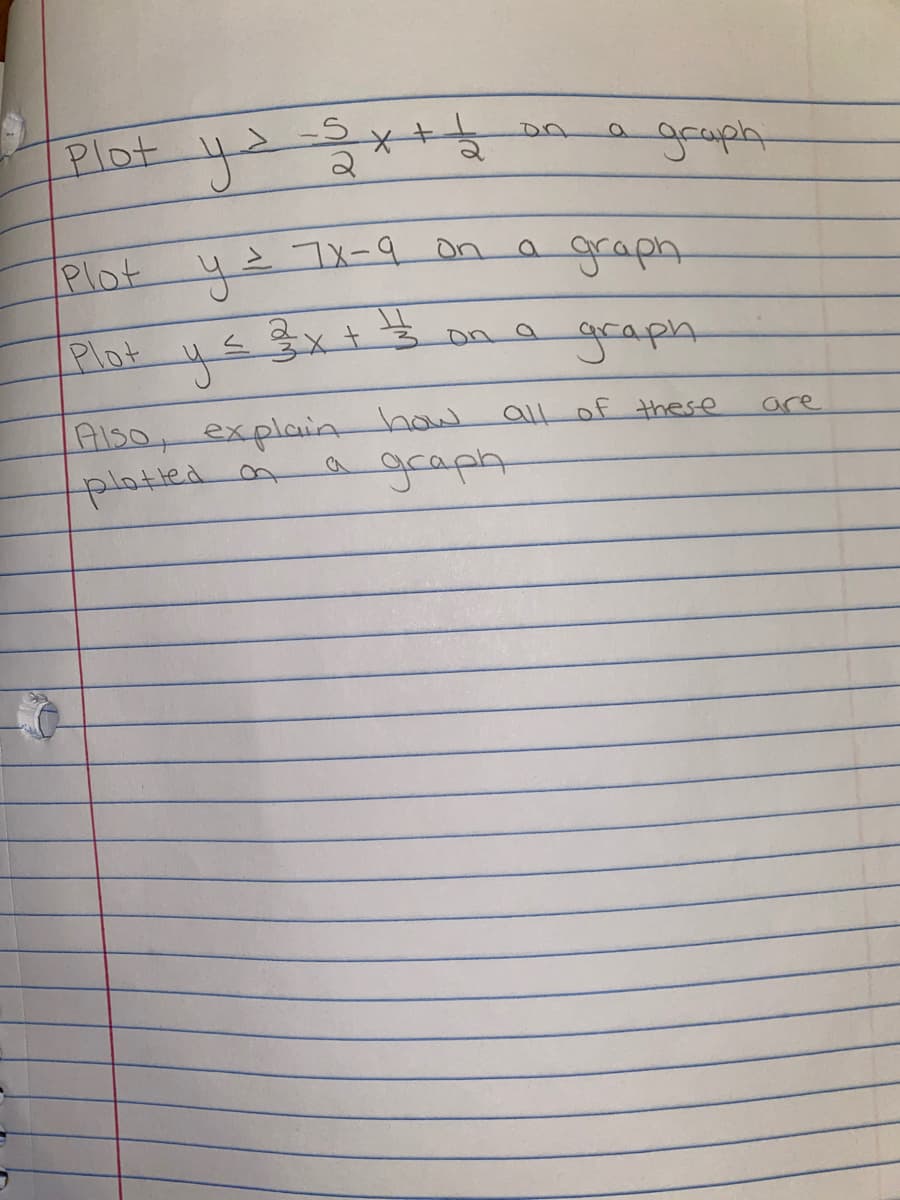 Plot y ≥ -5/2 x + 1/2 on a graph
Plot y ≥ 7x-9 on a graph
Plot y ≤ 2/3 x + 11/3 on a graph
Also, explain how all of these are
plotted on a graph